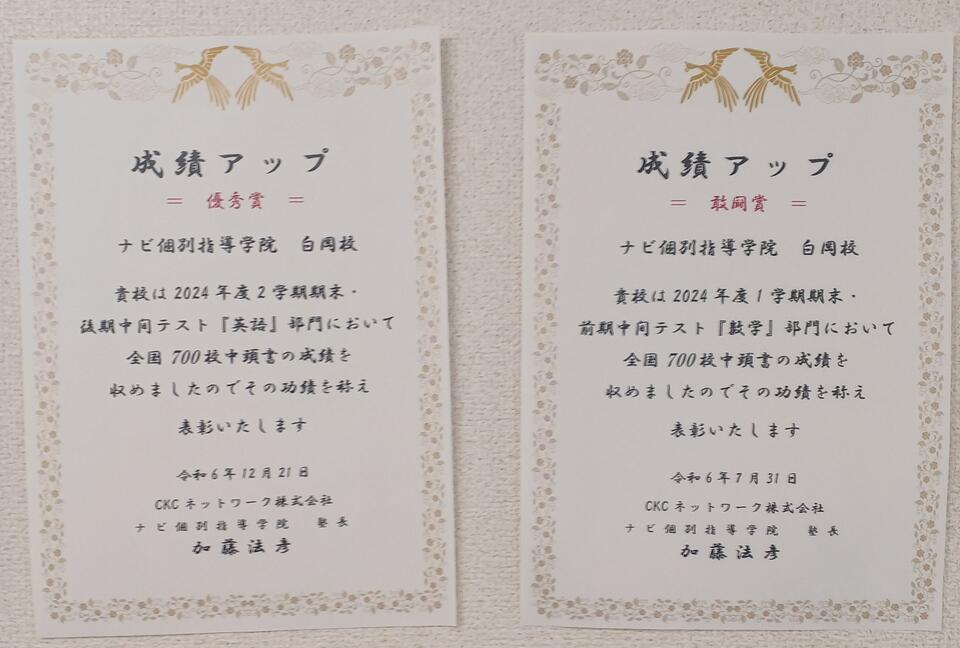 成績アップ
＝ 優秀賞 ＝
ナビ個別指導学院 白岡校
貴校は2024年度2学期期末・
後期中間テスト『英語』部門において
全国700校中頭書の成績を
収めましたのでその功績を称え
表彰いたします
令和6年12月21日
CKCネットワーク株式会社
ナビ個別指導学院 塾長
加藤法彦
成績アップ
＝ 敢闘賞 ＝
ナビ個別指導学院 白岡校
貴校は2024年度1学期期末・
前期中間テスト『数学』部門において
全国700校中頭書の成績を
収めましたのでその功績を称え
表彰いたします
令和6年7月31日
CKCネットワーク株式会社
ナビ個別指導学院 塾長
加藤法彦